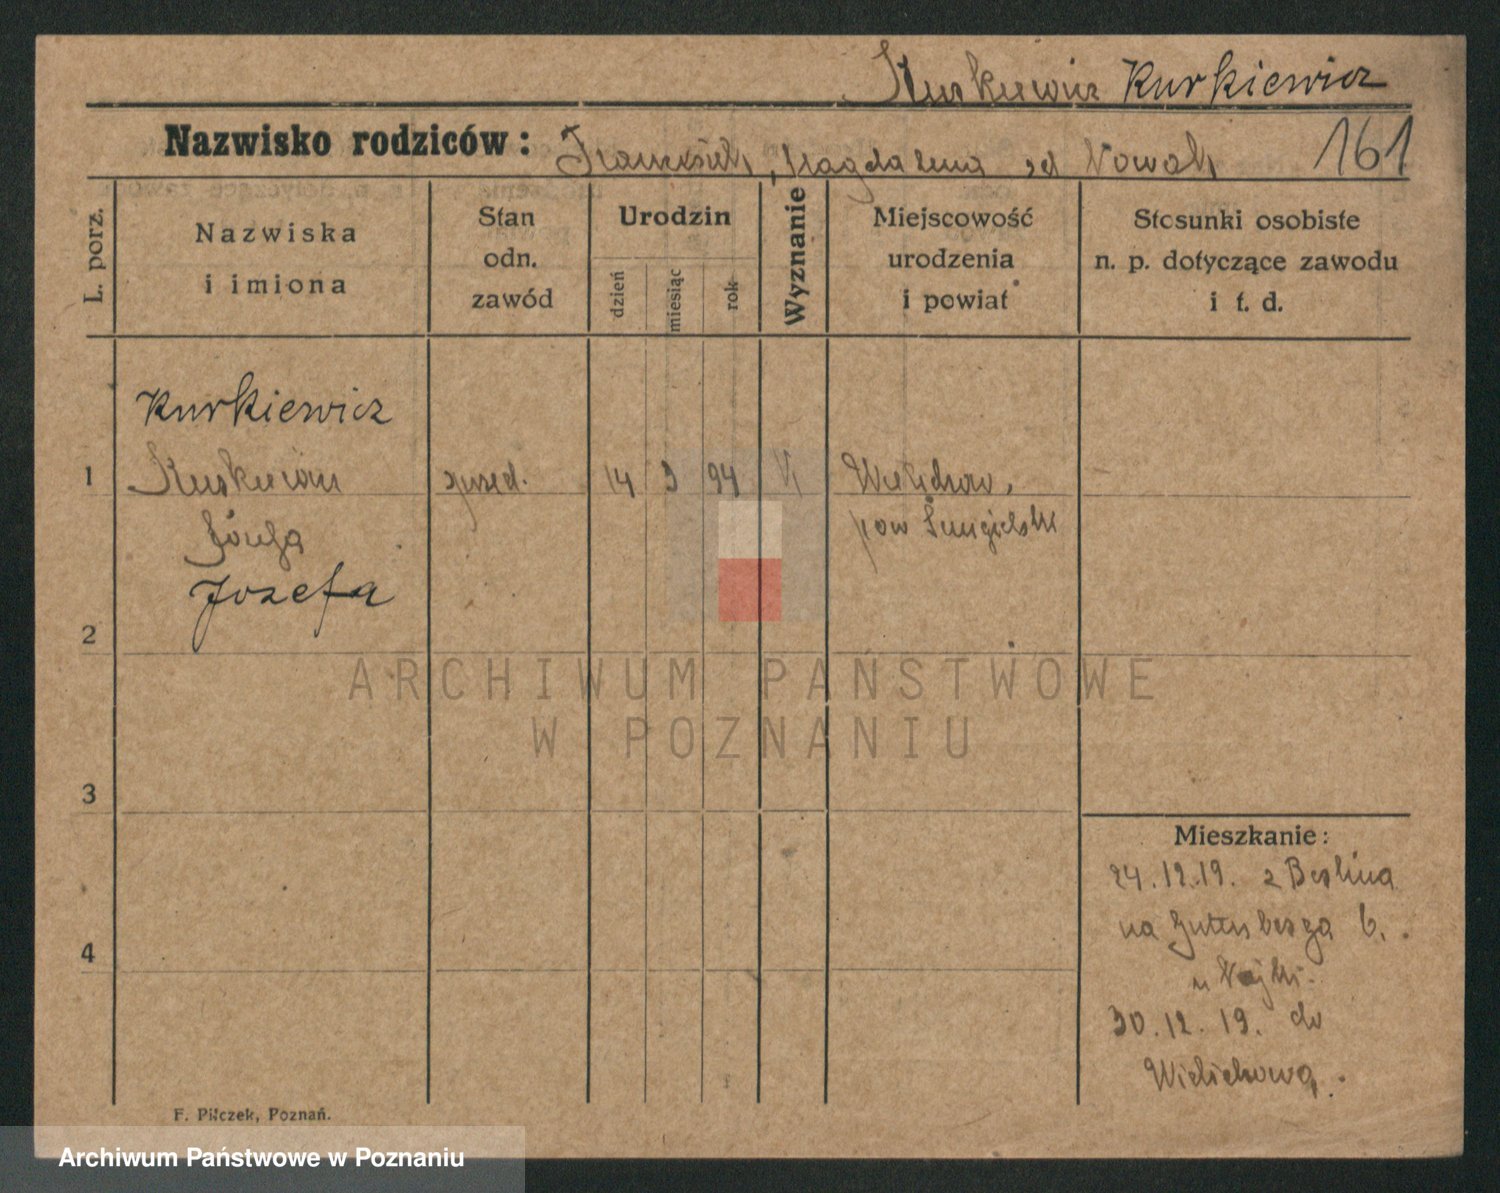 Kurkiewicz Kurkiewicz
Nazwisko rodziców: Franciszek, Magdalena zd Nowak 161
L. porz.
Nazwiska
i imiona
Stan
odn.
zawód
Urodzin
dzień
miesiąc
rok
Wyznanie
Miejscowość
urodzenia
i powiat
Stosunki osobiste
n. p. dotyczące zawodu
i t. d.
Kurkiewicz
1 Kurkiewicz 14 3 94 Wielichow,
Józefa pow Śmigielski
Józefa
2
3
4
Mieszkanie:
24.12.19. z Berlina
na Gutenberga 6.
u
30.12.19. do
Wielichowa.
F. Pilczek, Poznań.
ARCHIWUM PAŃSTWOWE
W POZNANIU
Archiwum Państwowe w Poznaniu